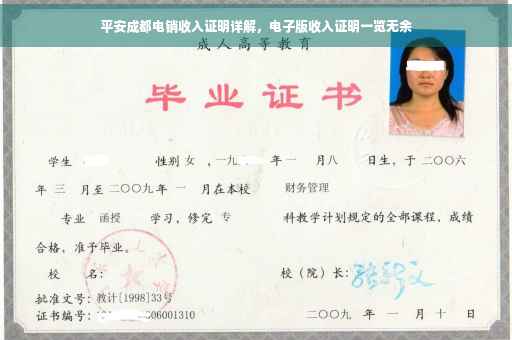 平安成都电销收入证明详解，电子版收入证明一览无余
成人高等教育
毕业证书
学生 性别 女 ，一九 年一 月八 日生，于二〇〇六
年 三 月至二〇〇九年 一 月在本校 财务管理
专业 函授 学习，修完 专 科教学计划规定的全部课程，成绩
合格，准予毕业。
校 名： 校（院）长：
批准文号：教计[1998]33号
证书编号： 06001310 二〇〇九 年 一 月 十 日